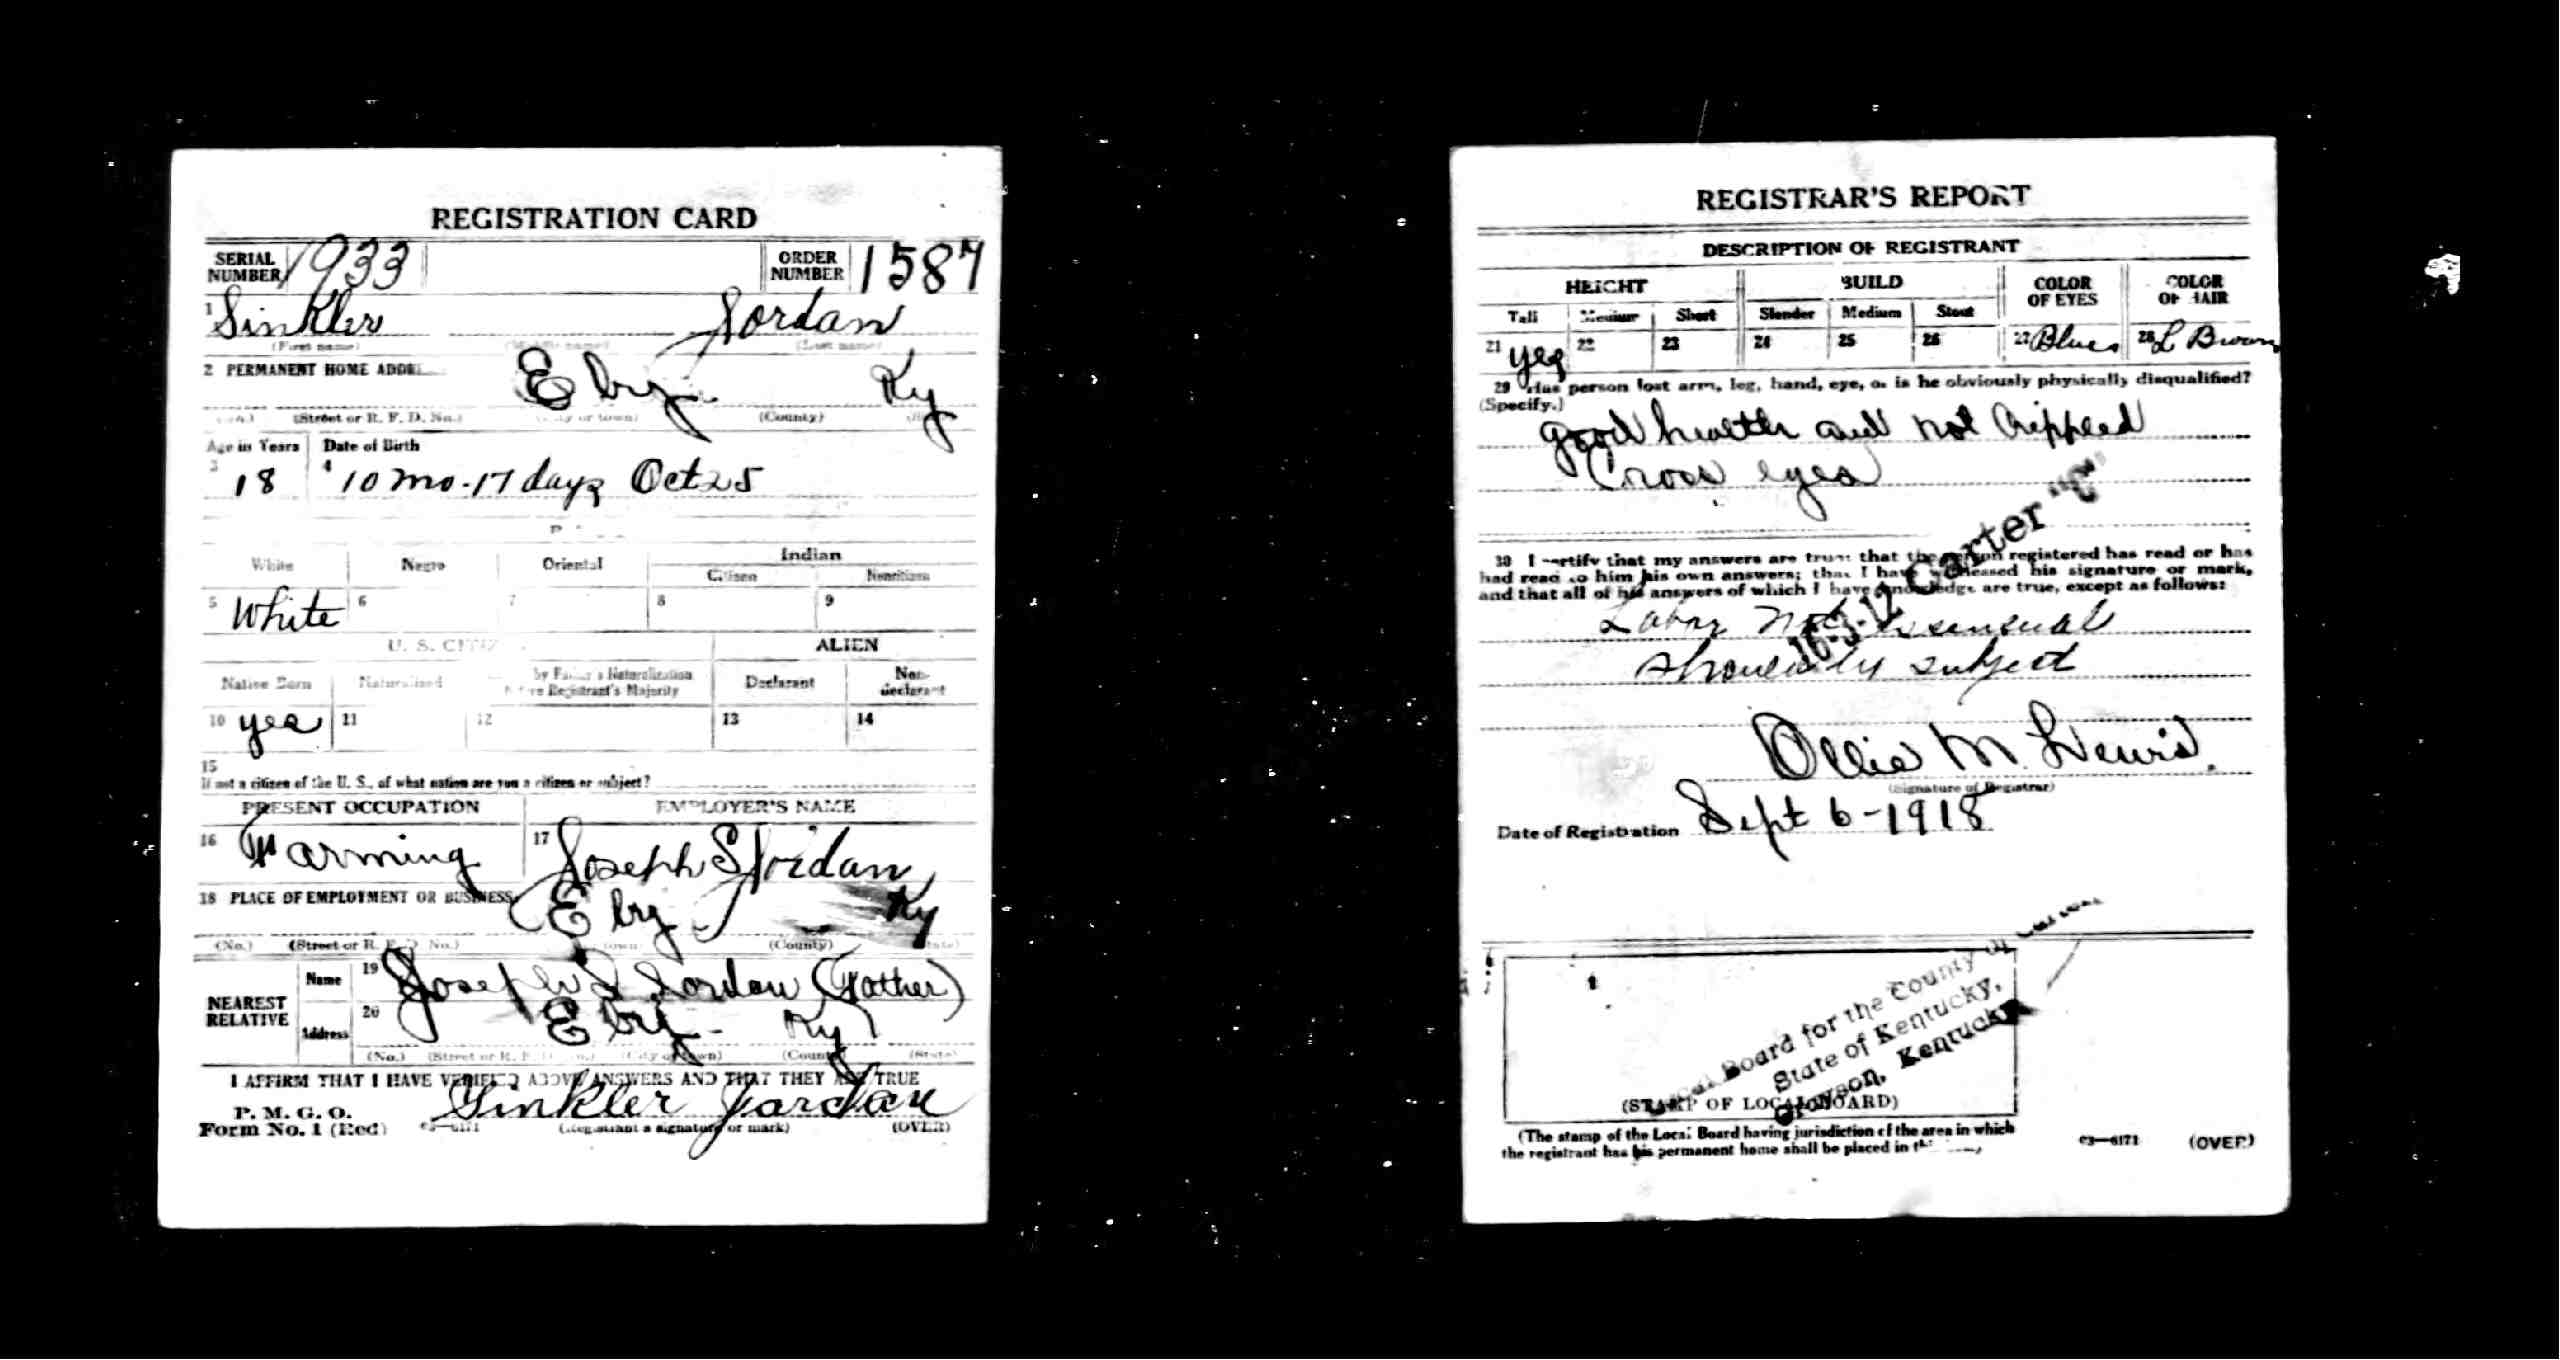 REGISTRATION CARD
SERIAL NUMBER 1933 ORDER NUMBER 1587
1 Sinkler Jordan
(First name) (Middle name) (Last name)
2 PERMANENT HOME ADDRE
Eby Ky
(Street or R. F. D. No.) (City or town) (County)
Age in Years Date of Birth
3 18 4 10 mo.-17 days Oct 25
White Negro Oriental Indian
Citizen Noncitizen
5 White 6 7 8 9
U. S. CITIZ ALIEN
Native Born Naturalized by Father's Naturalization Before Registrant's Majority Declarant Non-declarant
10 yes 11 12 13 14
15
If not a citizen of the U. S., of what nation are you a citizen or subject?
PRESENT OCCUPATION EMPLOYER'S NAME
16 Farming 17 Joseph S Jordan
18 PLACE OF EMPLOYMENT OR BUSINESS
Eby Ky
(No.) (Street or R. F. D. No.) (County) (State)
NEAREST RELATIVE Name 19 Joseph S Jordan (Father)
Address 20 Eby - Ky
(No.) (Street or R. F. D. No.) (City or town) (County) (State)
I AFFIRM THAT I HAVE VERIFIED ABOVE ANSWERS AND THAT THEY ARE TRUE
P. M. G. O.
Form No. 1 (Red) 03—6171 Sinkler Jordan
(Registrant's signature or mark) (OVER)
REGISTRAR'S REPORT
DESCRIPTION OF REGISTRANT
HEIGHT BUILD COLOR OF EYES COLOR OF HAIR
Tall Medium Short Slender Medium Stout
21 yes 22 23 24 25 26 27 Blue 28 L Brown
29 Has person lost arm, leg, hand, eye, or is he obviously physically disqualified?
(Specify.)
good health and not crippled
Cross eyes
30 I certify that my answers are true; that the person registered has read or has
had read to him his own answers; that I have witnessed his signature or mark,
and that all of his answers of which I have knowledge are true, except as follows:
16-3-12 Carter "C"
Labor
subject
Ollie M. Lewis
(Signature of Registrar)
Date of Registration Sept 6-1918
Local Board for the County of Carter
State of Kentucky,
Grayson, Kentucky
(STAMP OF LOCAL BOARD)
(The stamp of the Local Board having jurisdiction of the area in which
the registrant has his permanent home shall be placed in
03—6171 (OVER)